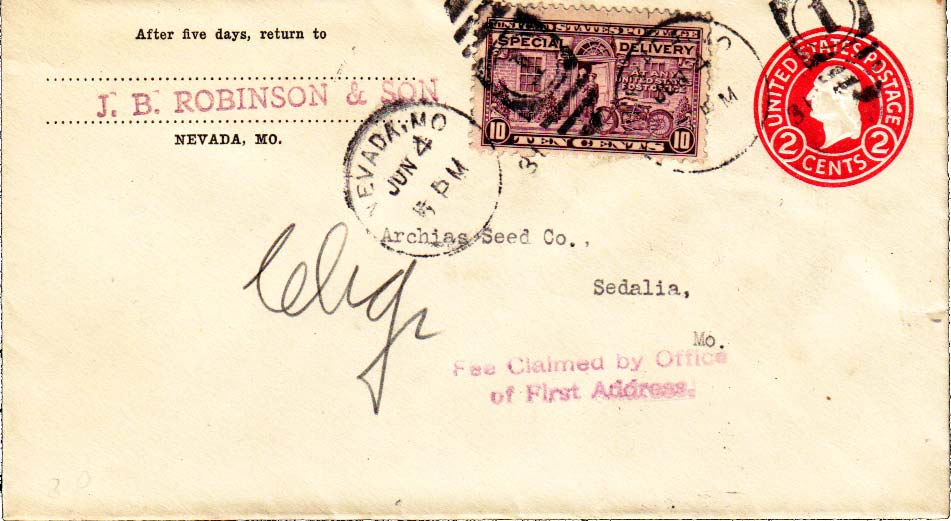 After five days, return to
J. B. ROBINSON & SON
NEVADA, MO.
UNITED STATES POSTAGE
SPECIAL DELIVERY
AT ANY
UNITED STATES
POST OFFICE
10 TEN CENTS 10
UNITED STATES POSTAGE
2 CENTS 2
1
NEVADA, MO
JUN 4
PM
Archias Seed Co.,
Sedalia,
Mo.
Fee Claimed by Office
of First Address.